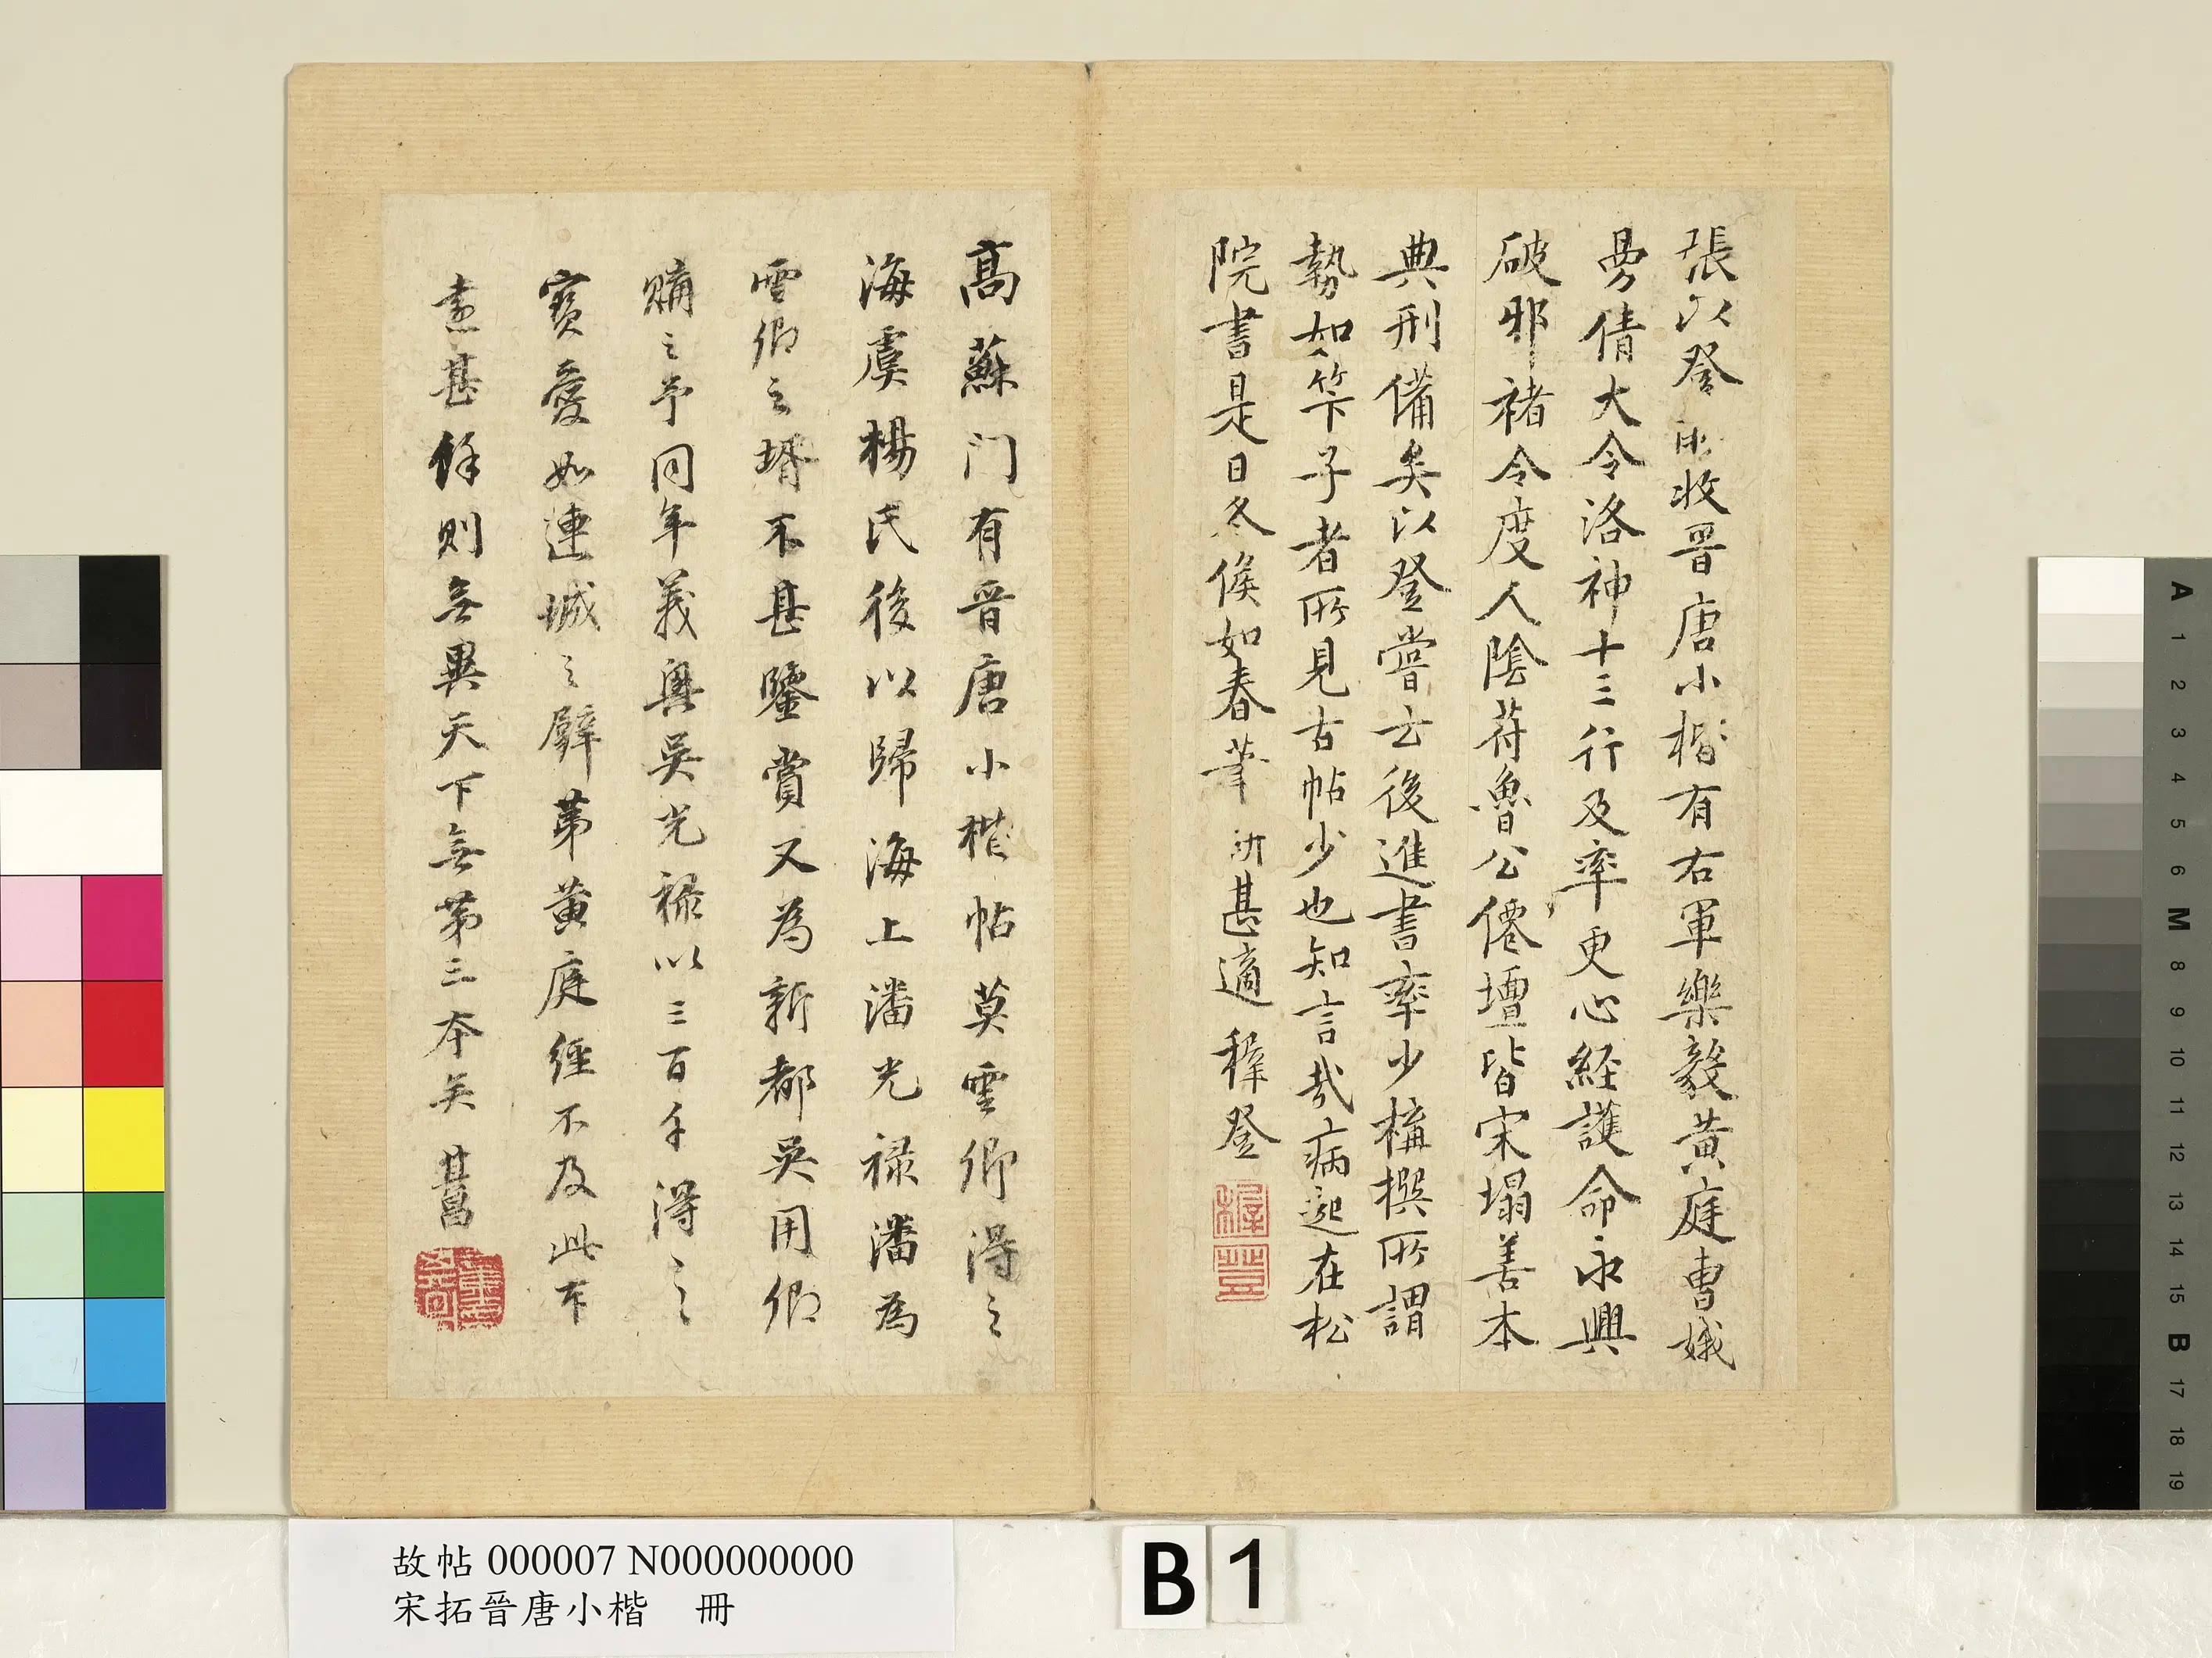 張以登所收晉唐小楷有右軍樂毅黃庭曹娥
曼倩大令洛神十三行及率更心経護命永興
破邪褚令度人陰苻魯公僊壇皆宋塌善本
典刑備矣以登嘗云後進書率少構撰所謂
勢如竿子者所見古帖少也知言哉病起在松
院書是日冬候如春筆研甚適穉登
高蘇门有晋唐小楷帖莫雲卿得之
海虞楊氏後以歸海上潘光祿潘為
雲卿之壻不甚鑒賞又為新都吳用卿
購之予同年義興吳光祿以三百千得之
寶愛如連城之璧第黃庭經不及此本
遠甚餘則無異天下無第三本矣其昌
故帖 000007 N000000000
宋拓晉唐小楷 冊
B 1
A
1
2
3
4
5
6
M
8
9
10
11
12
13
14
15
B
17
18
19